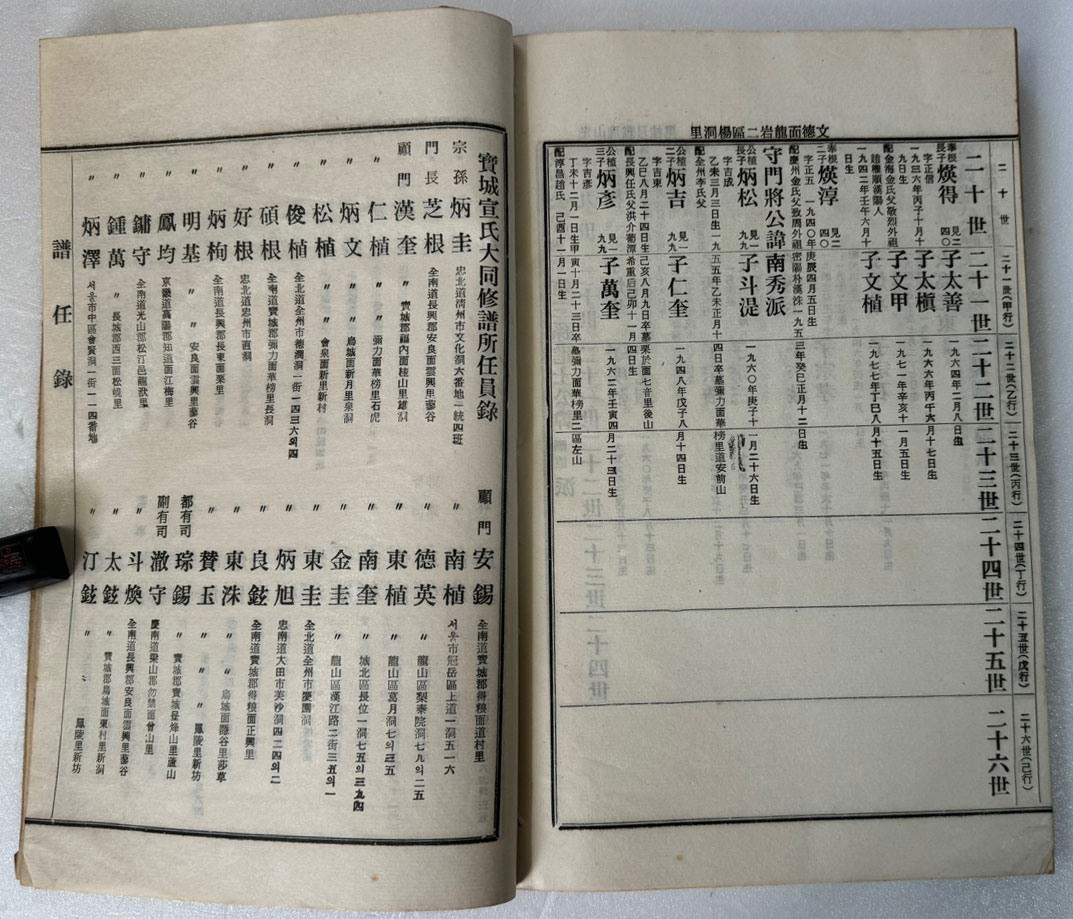 文德面龍岩二區楊洞里
二十世
二十一世(甲行)
二十二世(乙行)
二十三世(丙行)
二十四世(丁行)
二十五世(戊行)
二十六世(己行)
二十世
二十一世
二十二世
二十三世
二十四世
二十五世
二十六世
奉根長子煐得 見二四○
字正信
一九三六年丙子十月十九日生
配金海金氏父敬烈外祖趙雁順漢陽人
一九四二年壬午六月十日生
子太善
一九六四年二月八日生
子太槇
一九六六年丙午六月十七日生
子文甲
一九七一年辛亥十一月五日生
子文植
一九七七年丁巳八月十五日生
奉根二子煐淳 見二四○
字正五 一九四○年庚辰四月五日生
配慶州金氏父致周外祖密陽朴漢洙一九五三年癸巳正月十二日生
守門將公諱南秀派
公植長子炳松 見一九九
字吉成
乙未三月三日生一九五五年乙未正月十四日卒墓彌力面華榜里道安前山
配全州李氏父
子斗湜
一九六○年庚子十一月二十六日生
公植二子炳吉 見一九九
字吉東
乙巳八月二十四日生己亥八月九日卒墓栗於面七音里後山
配長興任氏父洪介葡潭希重后己卯十一月四日生
子仁奎
一九四八年戊子八月十四日生
公植三子炳彥 見一九九
字吉彥
丁未十二月一日生甲寅十月二十三日卒墓彌力面華榜里二區左山
配淳昌趙氏 己酉十一月一日生
子萬奎
一九六二年壬寅四月二十三日生
寶城宣氏大同修譜所任員錄
宗孫炳圭 忠北道淸州市文化洞六番地一統四班
門長芝根 全南道長興郡安良面雲興里藜谷
顧門漢奎 〃 寶城郡福內面桂山里雄洞
〃 仁植 〃 〃 彌力面華榜里石虎
〃 炳文 〃 〃 鳥城面新月里泉洞
〃 松植 〃 〃 會泉面新里新村
〃 俊植 全北道全州市德澗洞一街二四三六의四
〃 碩根 全南道寶城郡彌力面華榜里長洞
〃 好根 忠北道忠州市直洞
〃 炳枸 全南道長興郡長東面栗里
〃 明基 〃 〃 安良面雲興里藜谷
〃 鳳均 京畿道高陽郡知道面江梅里
〃 鏞守 全南道光山郡松汀邑龍洑里
〃 鍾萬 〃 長城郡西三面松峴里
〃 炳澤 서울市中區會賢洞一街一一四番地
顧門安錫 全南道寶城郡得粮面道村里
〃 南植 서울市冠岳區上道一洞五一六
〃 德英 〃 龍山區梨泰院洞七九의二五
〃 東植 〃 龍山區葛月洞七의三五
〃 南奎 〃 城北區長位一洞七五의三九四
〃 金圭 〃 龍山區漢江路二街三五의一
〃 東圭 全北道全州市慶園洞
〃 炳旭 忠南道大田市芙沙洞四二四의二
〃 良鉉 全南道寶城郡得粮面正興里
〃 東洙 〃 〃 鳥城面隱谷里莎草
〃 贊玉 〃 〃 〃 鳳陵里新坊
都有司琮錫 〃 寶城郡寶城邑烽山里蘆山
副有司澈守 慶南道梁山郡勿禁面曾山里
〃 斗煥 全南道長興郡安良面雲興里藜谷
〃 太鉉 〃 寶城郡鳥城面東村里新洞
〃 汀鉉 〃 〃 〃 鳳陵里新坊
譜任錄